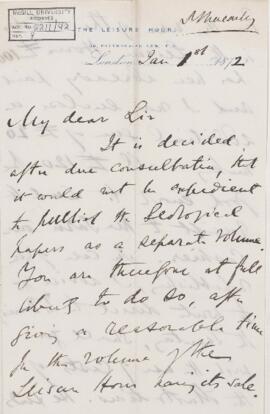 McGILL UNIVERSITY
ARCHIVES
ACC. NO. 2211/92
REF.
THE LEISURE HOUR,
56, PATERNOSTER ROW, E.C.
London Jan 1st 1872
My dear Sir
It is decided
after due consultation, that
it would not be expedient
to publish the Geological
papers as a separate volume.
You are therefore at full
liberty to do so, after
giving a reasonable time
for the volume of the
Leisure Hour having its sale.